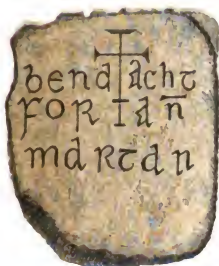 bendacht
FOR an̄
martan